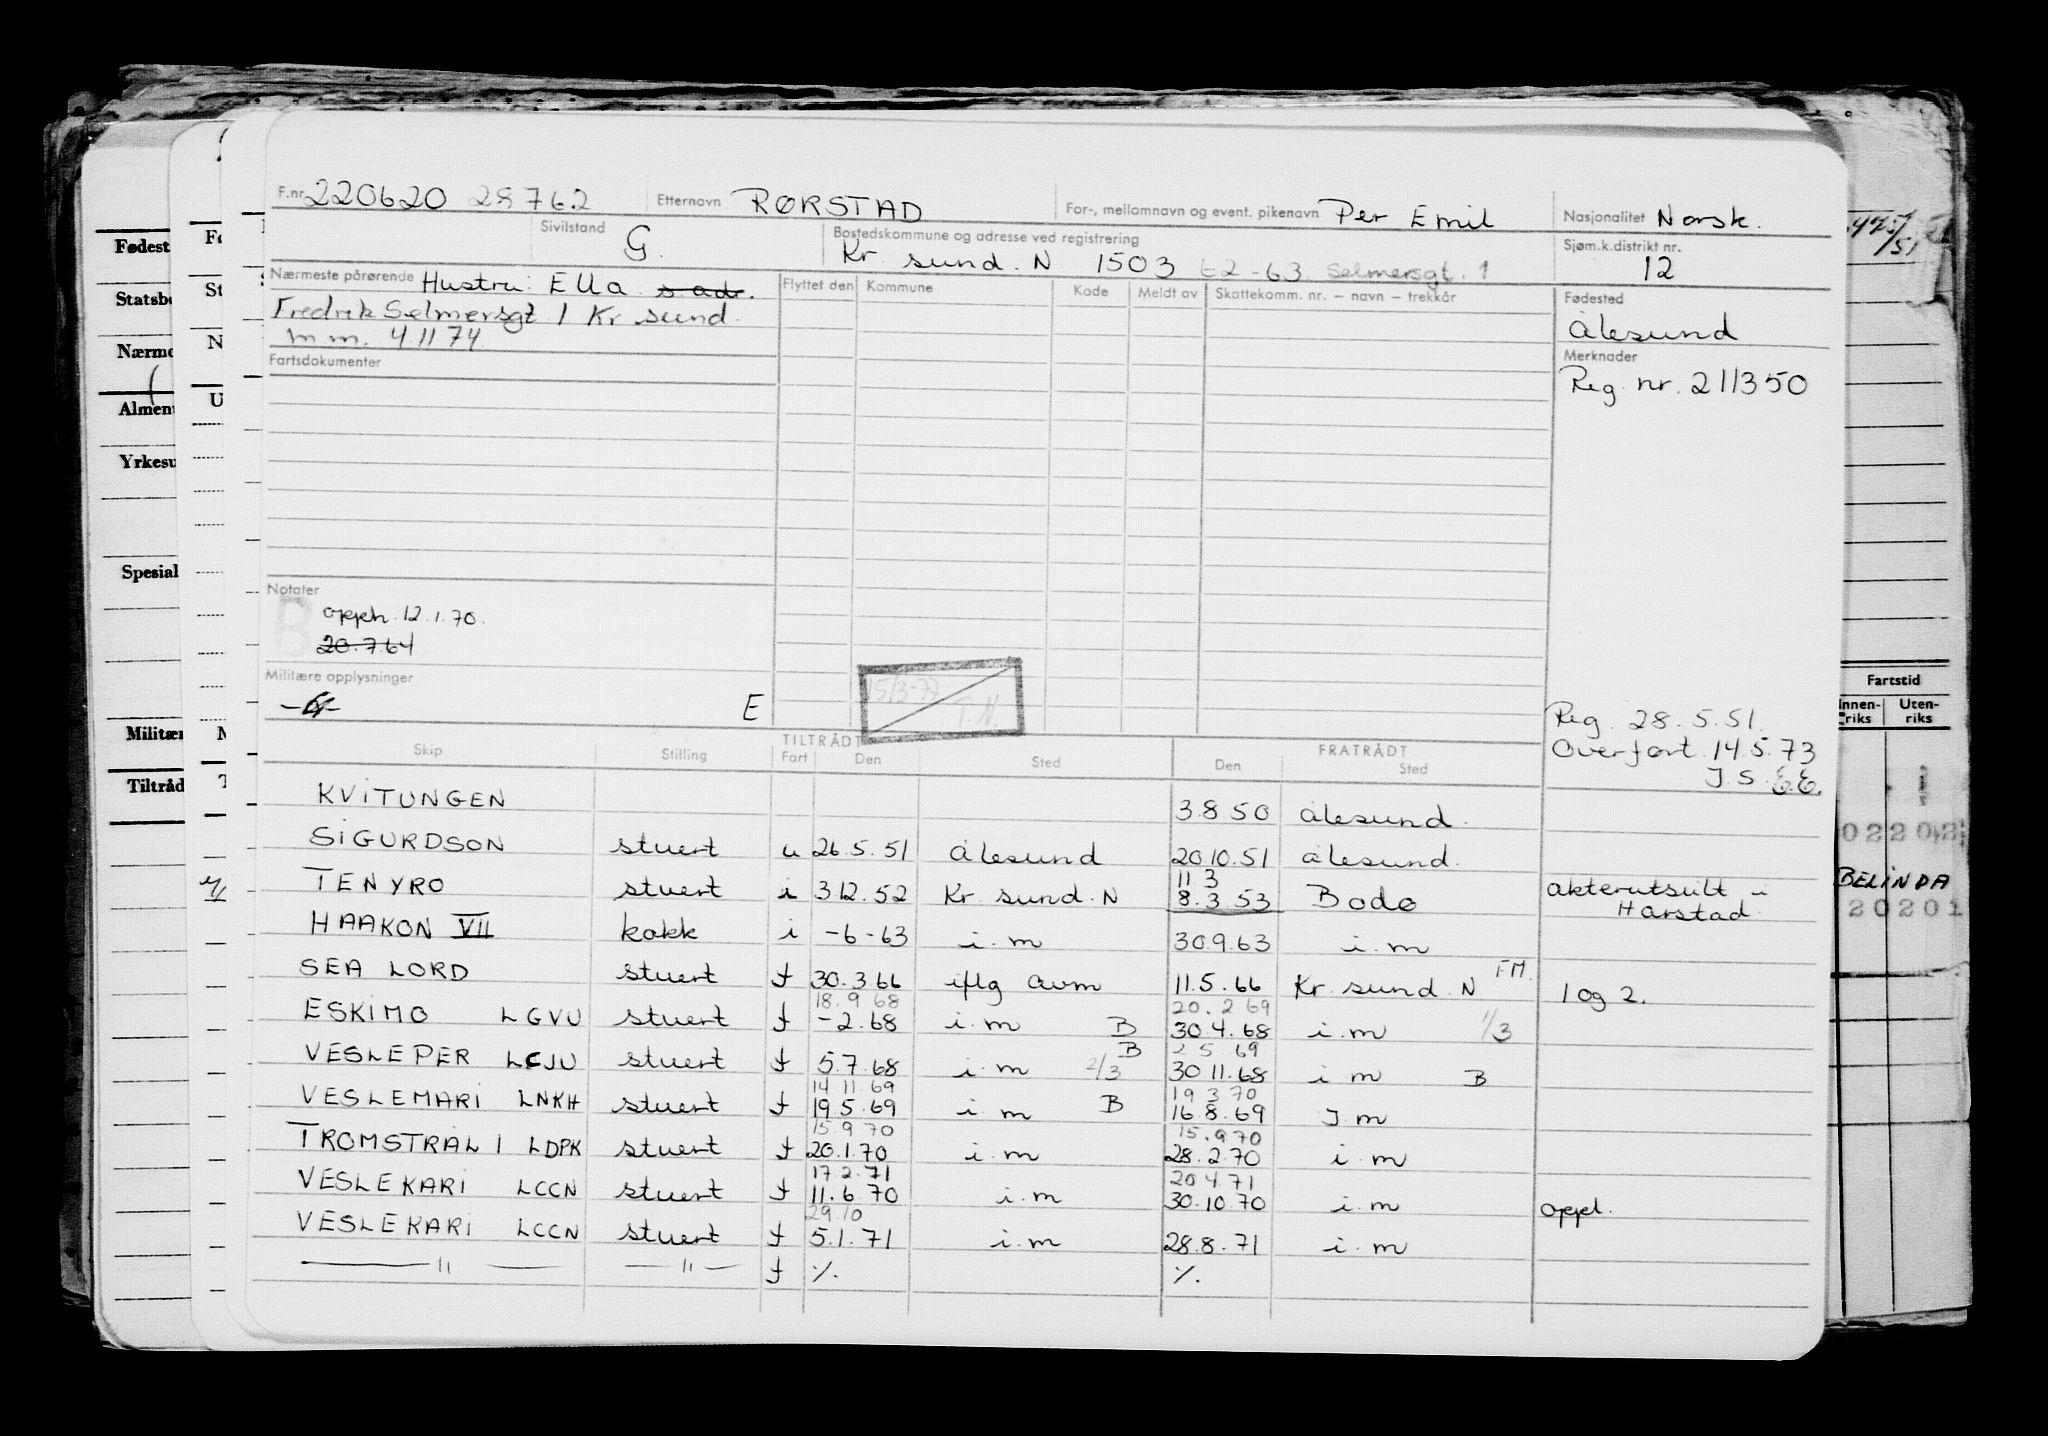 F.nr. 220620 29762 Etternavn RØRSTAD For-, mellomnavn og event. pikenavn Per Emil Nasjonalitet Norsk.
Sivilstand G. Bostedskommune og adresse ved registrering Kr. sund. N 1503 62-63. Selmersgt. 1 Sjøm.k.distrikt nr. 12
Nærmeste pårørende Hustru: Ella s. adr. Flyttet den Kommune Kode Meldt av Skattekomm. nr. – navn – trekkår Fødested
Fredrik Selmersgt 1 Kr sund. Ålesund
m.m. 4.11 74.
Fartsdokumenter Merknader
Reg. nr. 211350
Notater
B opph. 12.1.70.
20.7.64
Militære opplysninger
E
15/3-77 T.N.
Reg. 28.5.51.
Overført 14.5.73
J.S. E.E.
TILTRÅDT FRATRÅDT
Skip Stilling Fart Den Sted Den Sted
KVITUNGEN 3.8 50 Ålesund.
SIGURDSON stuert u 26.5.51 Ålesund 20.10.51 Ålesund.
11 3
TENYRO stuert i 3.12.52 Kr. sund. N 8.3.53 Bodø akterutseilt i Harstad
HAAKON VII kokk i -6-63 i.m 30.9.63 i.m
SEA LORD stuert f 30.3 66 iflg avm 11.5.66 Kr. sund. N FM. 1 og 2.
18.9 68 20.2 69
ESKIMO LGVU stuert f -2.68 i.m B 30.4.68 i.m 1/3
B 2 5 69
VESLEPER LCJU stuert f 5.7.68 i.m 2/3 30 11.68 i m B
14 11.69 19 3 70
VESLEMARI LNKH stuert f 19 5.69 i.m B 16.8.69 I.m
15.9 70 15.9 70
TROMSTRÅL 1 LDPK stuert f 20.1.70 i.m 28.2.70 i.m
17.2.71 20 4.71
VESLEKARI LCCN stuert f 11.6.70 i.m 30.10.70 i.m oppl.
29.10
VESLEKARI LCCN stuert f 5.1.71 i.m 28.8.71 i.m
— " — — " — f ./. ./.
Fødest
Statsbo
Nærme
Almen
Yrkesu
Spesial
Militær
Tiltråd
Fartstid
Innen-riks Uten-riks
BELINDA
20201